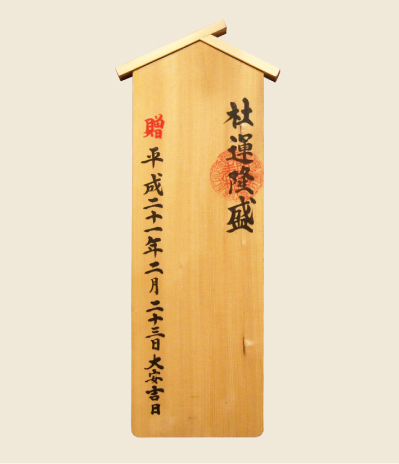 杜運隆盛
贈 平成二十一年二月二十三日大安吉日